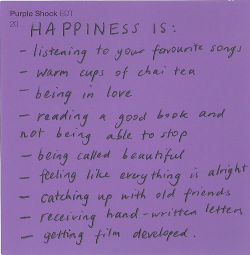 Purple Shook EDT
20
HAPPINESS IS:
- listening to your favourite songs
- warm cups of chai tea
- being in love
- reading a good book and
not being able to stop
- being called beautiful
- feeling like everything is alright
- catching up with old friends
- receiving hand-written letters
- getting film developed.